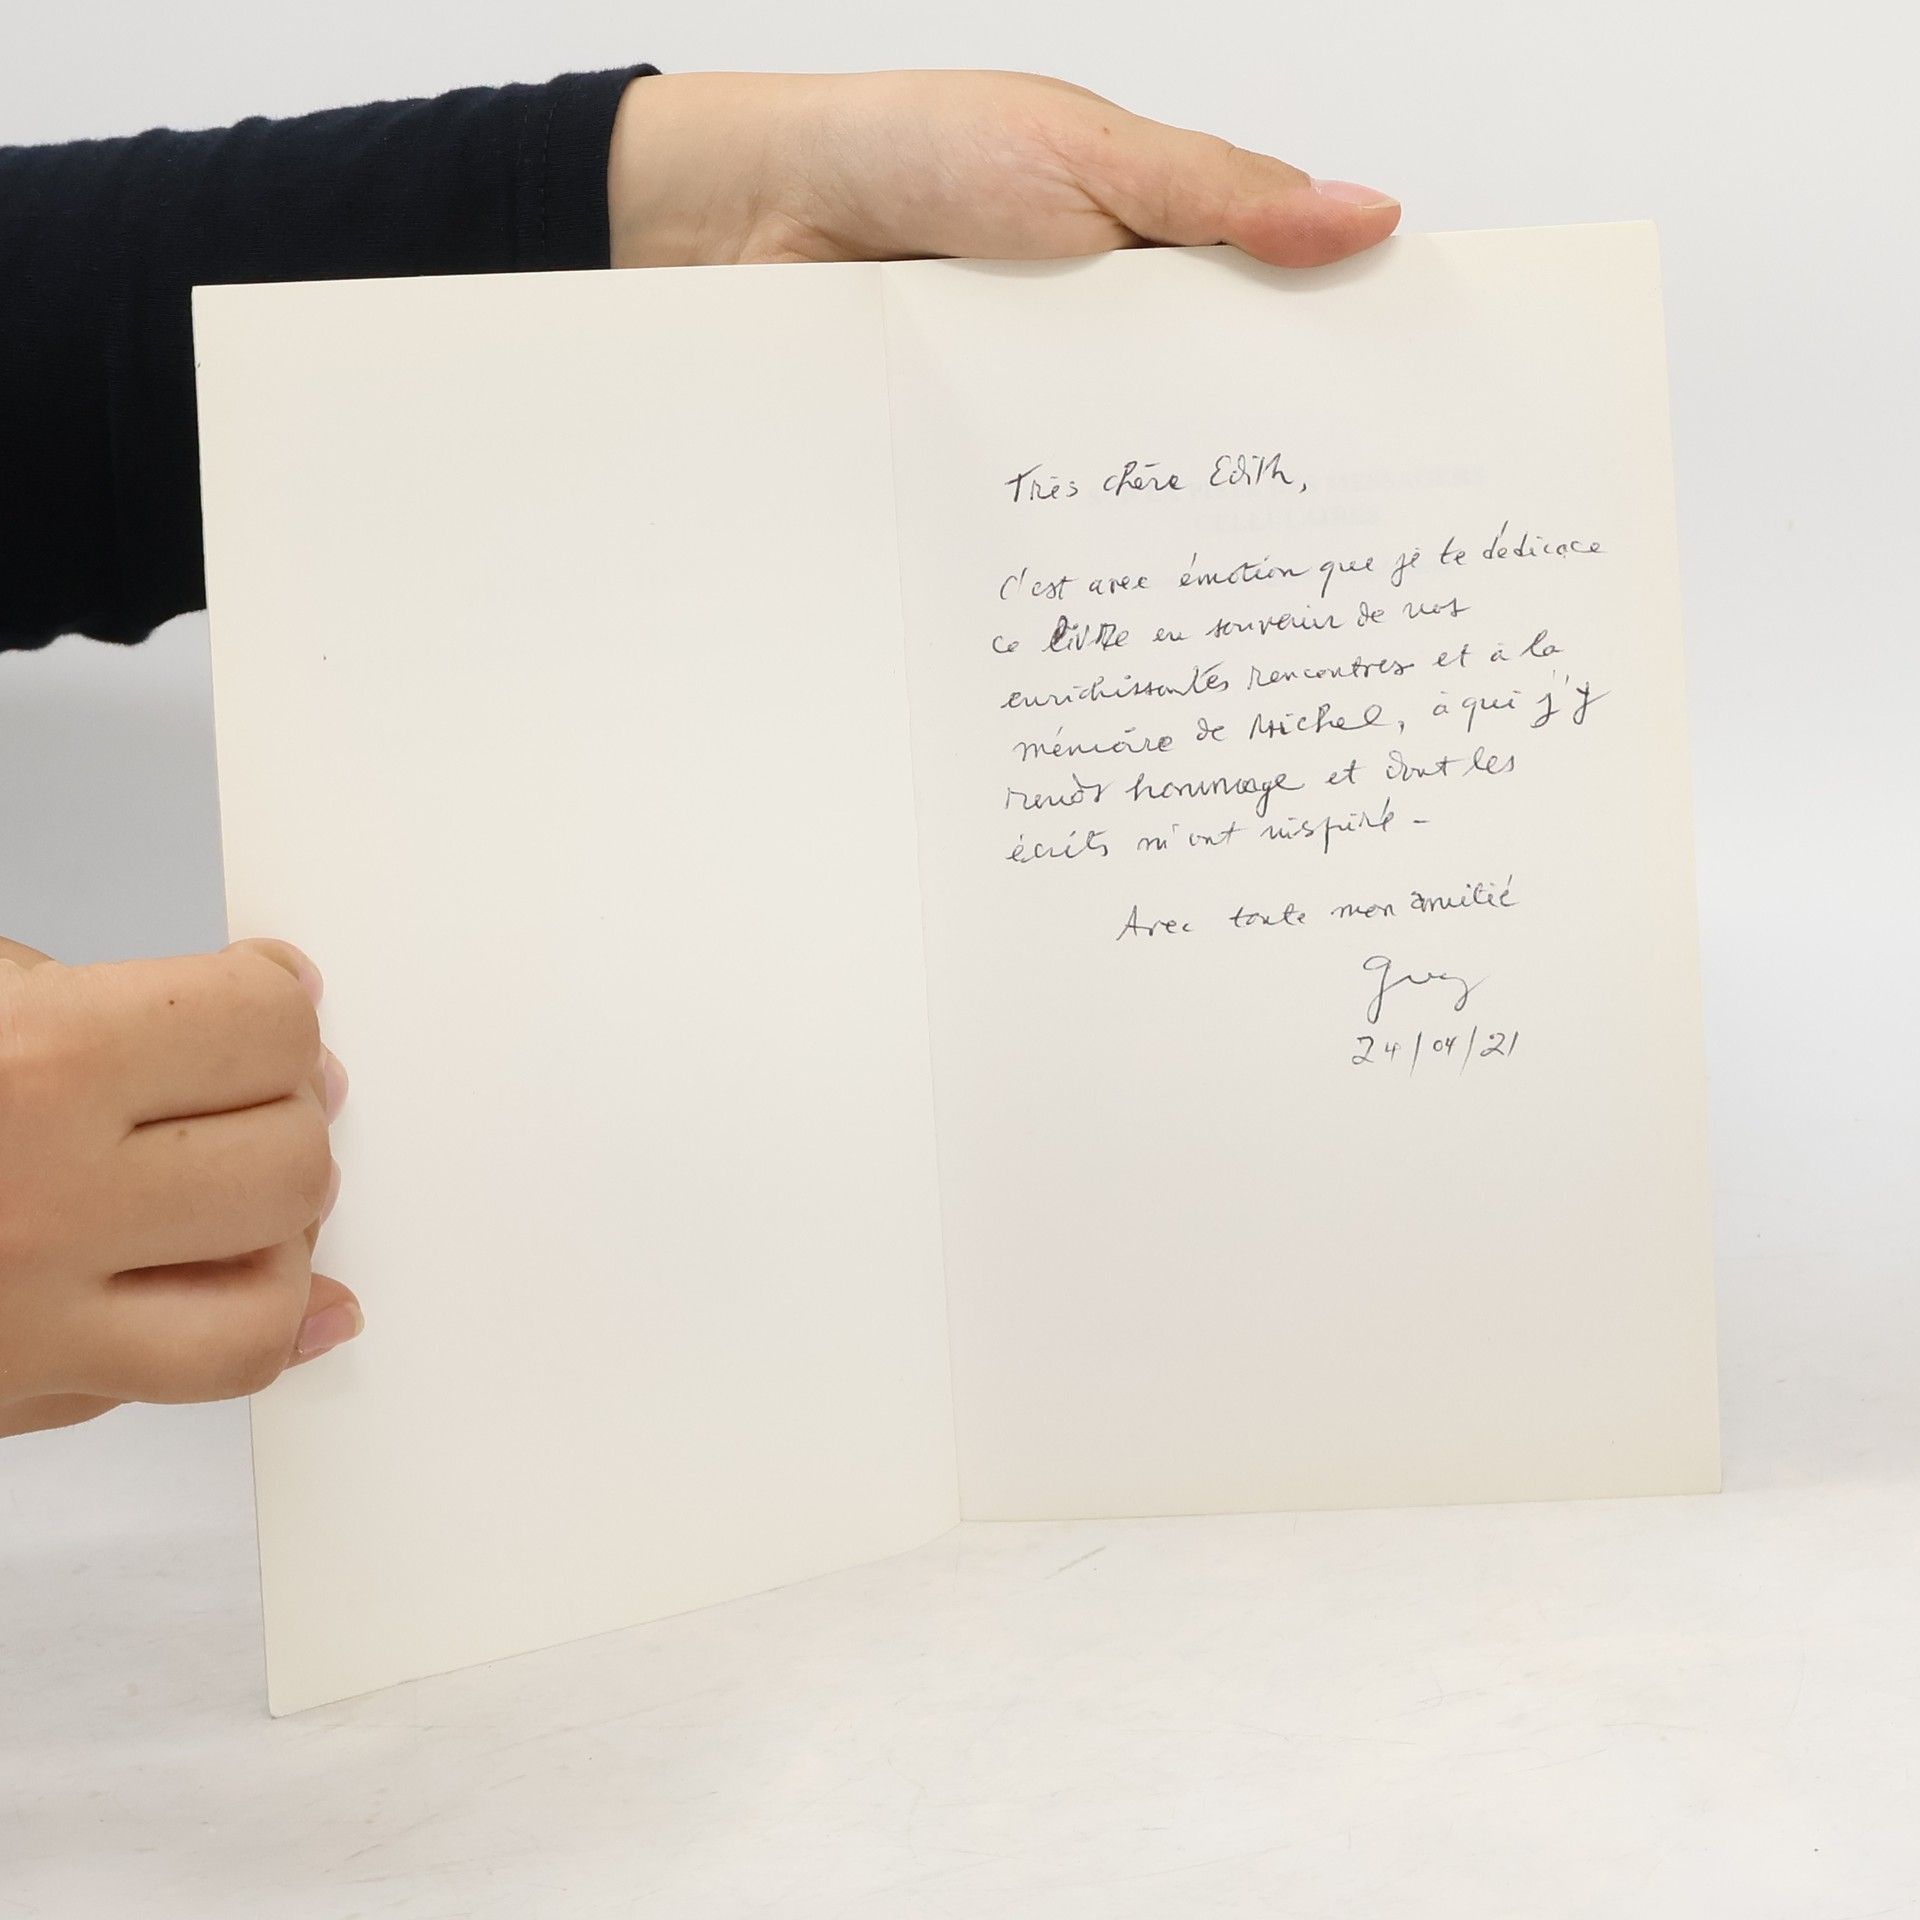 Très chère Edith,
C'est avec émotion que je te dédicace
ce livre en souvenir de nos
enrichissantes rencontres et à la
mémoire de Michel, à qui j'y
rends hommage et dont les
écrits m'ont inspiré -
Avec toute mon amitié
24/04/21